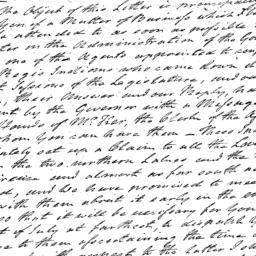 The Object of this Letter is principal
you of a Matter of Business which I
be attended to as soon as possible
ter in the Administration of the Gov
one of the Agents appointed to con
Regis Indians who came down
t Session of the Legislature, and ou
, their Answer and our Reply, ha
nt by the Governor with a Message
Hands of Mr Tier, the Clerk of the A
whom you can have them – These In
utely set up a Claim to all the Lan
the two northern Lakes and the
rence and almost as far south as
ed, and We have promised to mee
with them about it early in the
so that it will be necessary for you
t of July at farthest, to dispatch
e to them ascertaining the time
with respect to the latter I